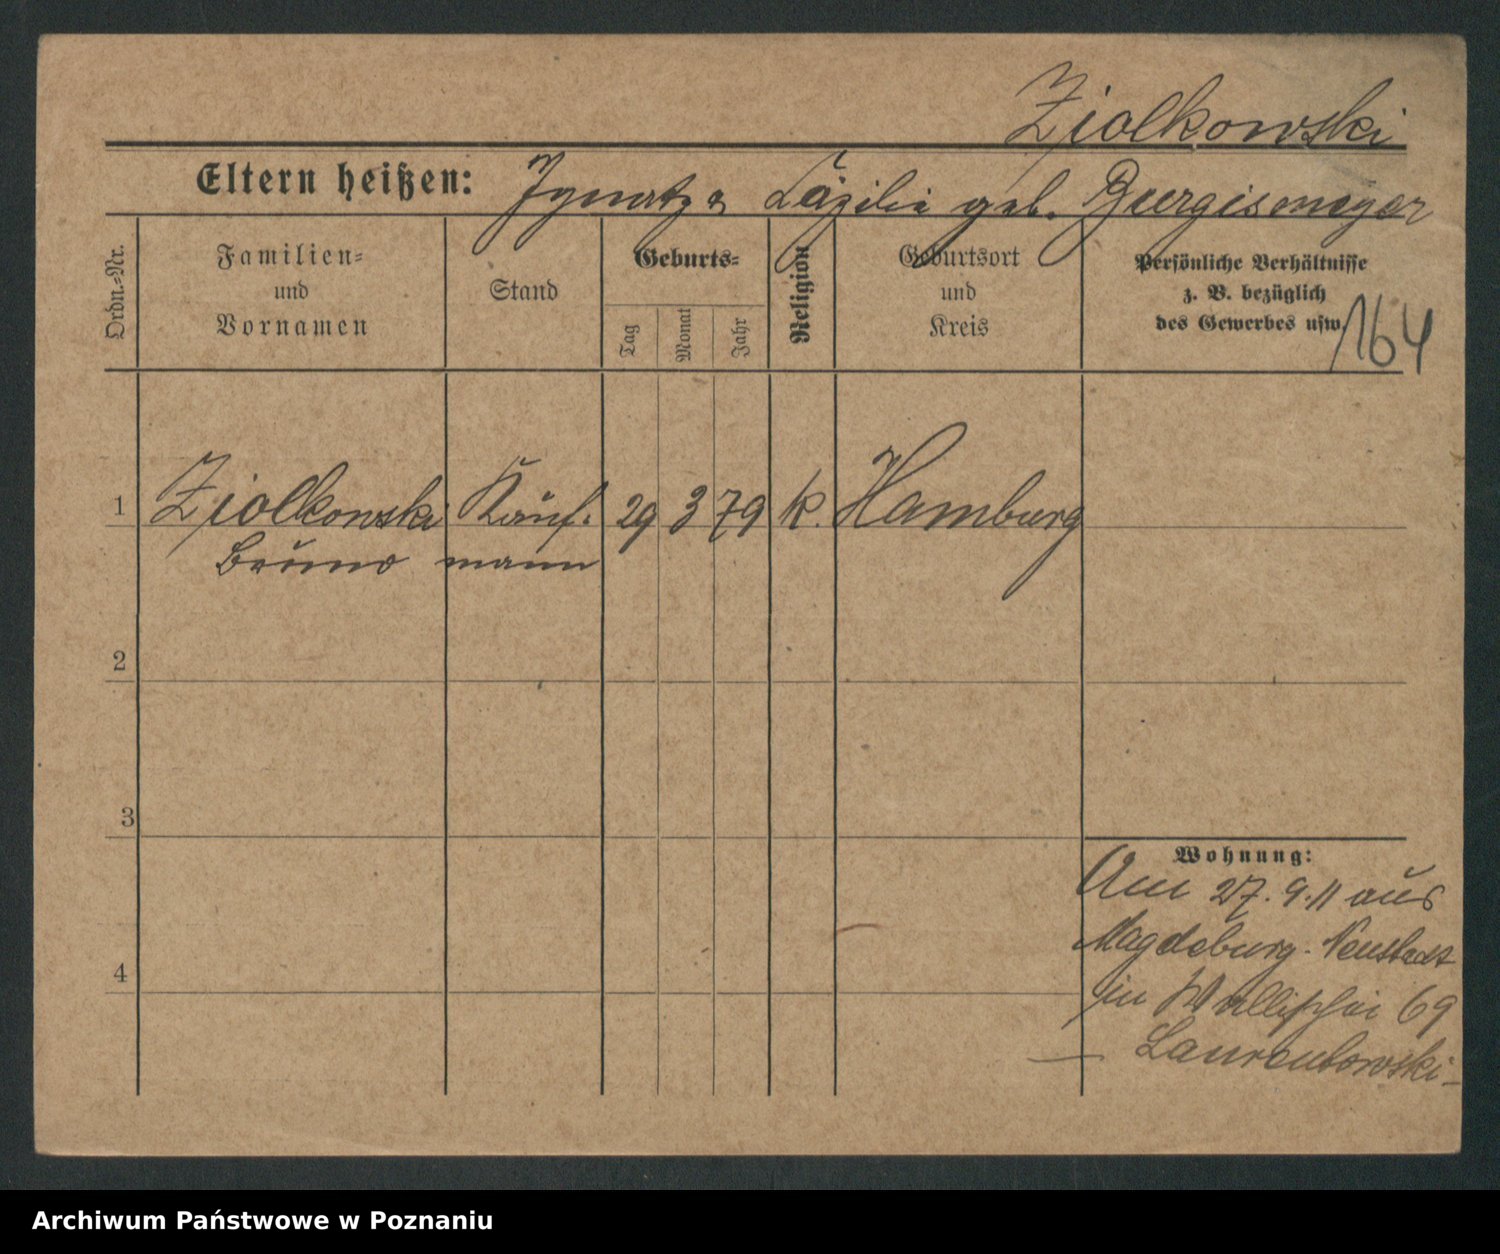 Ziolkowski
Eltern heißen: Ignatz & Cäzilie geb. Burgismeyer
Ordn.-Nr.
Familien-
und
Vornamen
Stand
Geburts-
Tag
Monat
Jahr
Religion
Geburtsort
und
Kreis
Persönliche Verhältnisse
z. B. bezüglich
des Gewerbes usw.
164
1 Ziolkowski Kauf. 29 3 79 k. Hamburg
Bruno mann
2
3
4
Wohnung:
Am 27.9.11 aus
Magdeburg-Neustadt
in Wallischei 69
— Laurentowski —
Archiwum Państwowe w Poznaniu